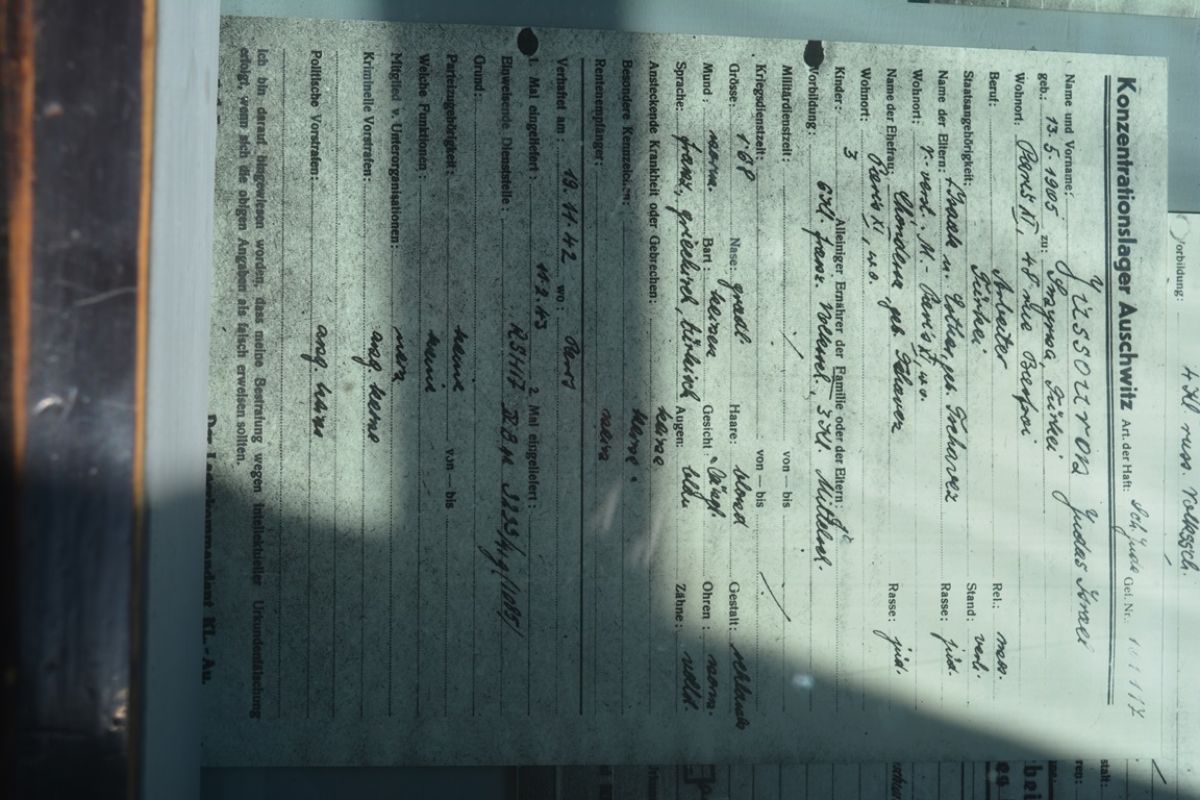 Vorbildung: 4 Kl russ. Volkssch.
Konzentrationslager Auschwitz Art der Haft: Sch. Jude Gef. Nr.:
Name und Vorname: Judas Israel
geb.: 13.5.1905 zu: Smyrna, Türkei
Wohnort Paris XI, 48 rue
Beruf: Arbeiter Rel.: mos.
Staatsangehörigkeit: Türkei Stand: verh.
Name der Eltern: Isaak u. Esther, geb. Rasse: jüd.
Wohnort: V. verst. M. - Paris XI, w.o.
Name der Ehefrau: geb. Rasse: jüd.
Wohnort: Paris XI, w.o.
Kinder: 3 Alleiniger Ernährer der Familie oder der Eltern:
Vorbildung: 6 Kl. franz. Volkssch., 3 Kl. Mittelsch.
Militärdienstzeit: von — bis
Kriegsdienstzeit: von — bis
Grösse: 168 Nase: gradl. Haare: blond Gestalt: schlank
Mund: norm. Bart: keinen Gesicht: längl. Ohren: norm.
Sprache: franz., griechisch, türkisch Augen: blau Zähne:
Ansteckende Krankheit oder Gebrechen: keine
Besondere Kennzeichen: keine
Rentenempfänger: nein
Verhaftet am: 19.11.42 wo: Paris
1. Mal eingeliefert: 11.2.43 2. Mal eingeliefert:
Einweisende Dienststelle: RSHA IV B 4a 3233/41g/1085/
Grund:
Parteizugehörigkeit: keine von — bis
Welche Funktionen: keine
Mitglied v. Unterorganisationen: nein
Kriminelle Vorstrafen: ang. keine
Politische Vorstrafen: ang. keine
Ich bin darauf hingewiesen worden, dass meine Bestrafung wegen intellektueller Urkundenfälschung
erfolgt, wenn sich die obigen Angaben als falsch erweisen sollten.
Der Lagerkommandant KL.-Au.